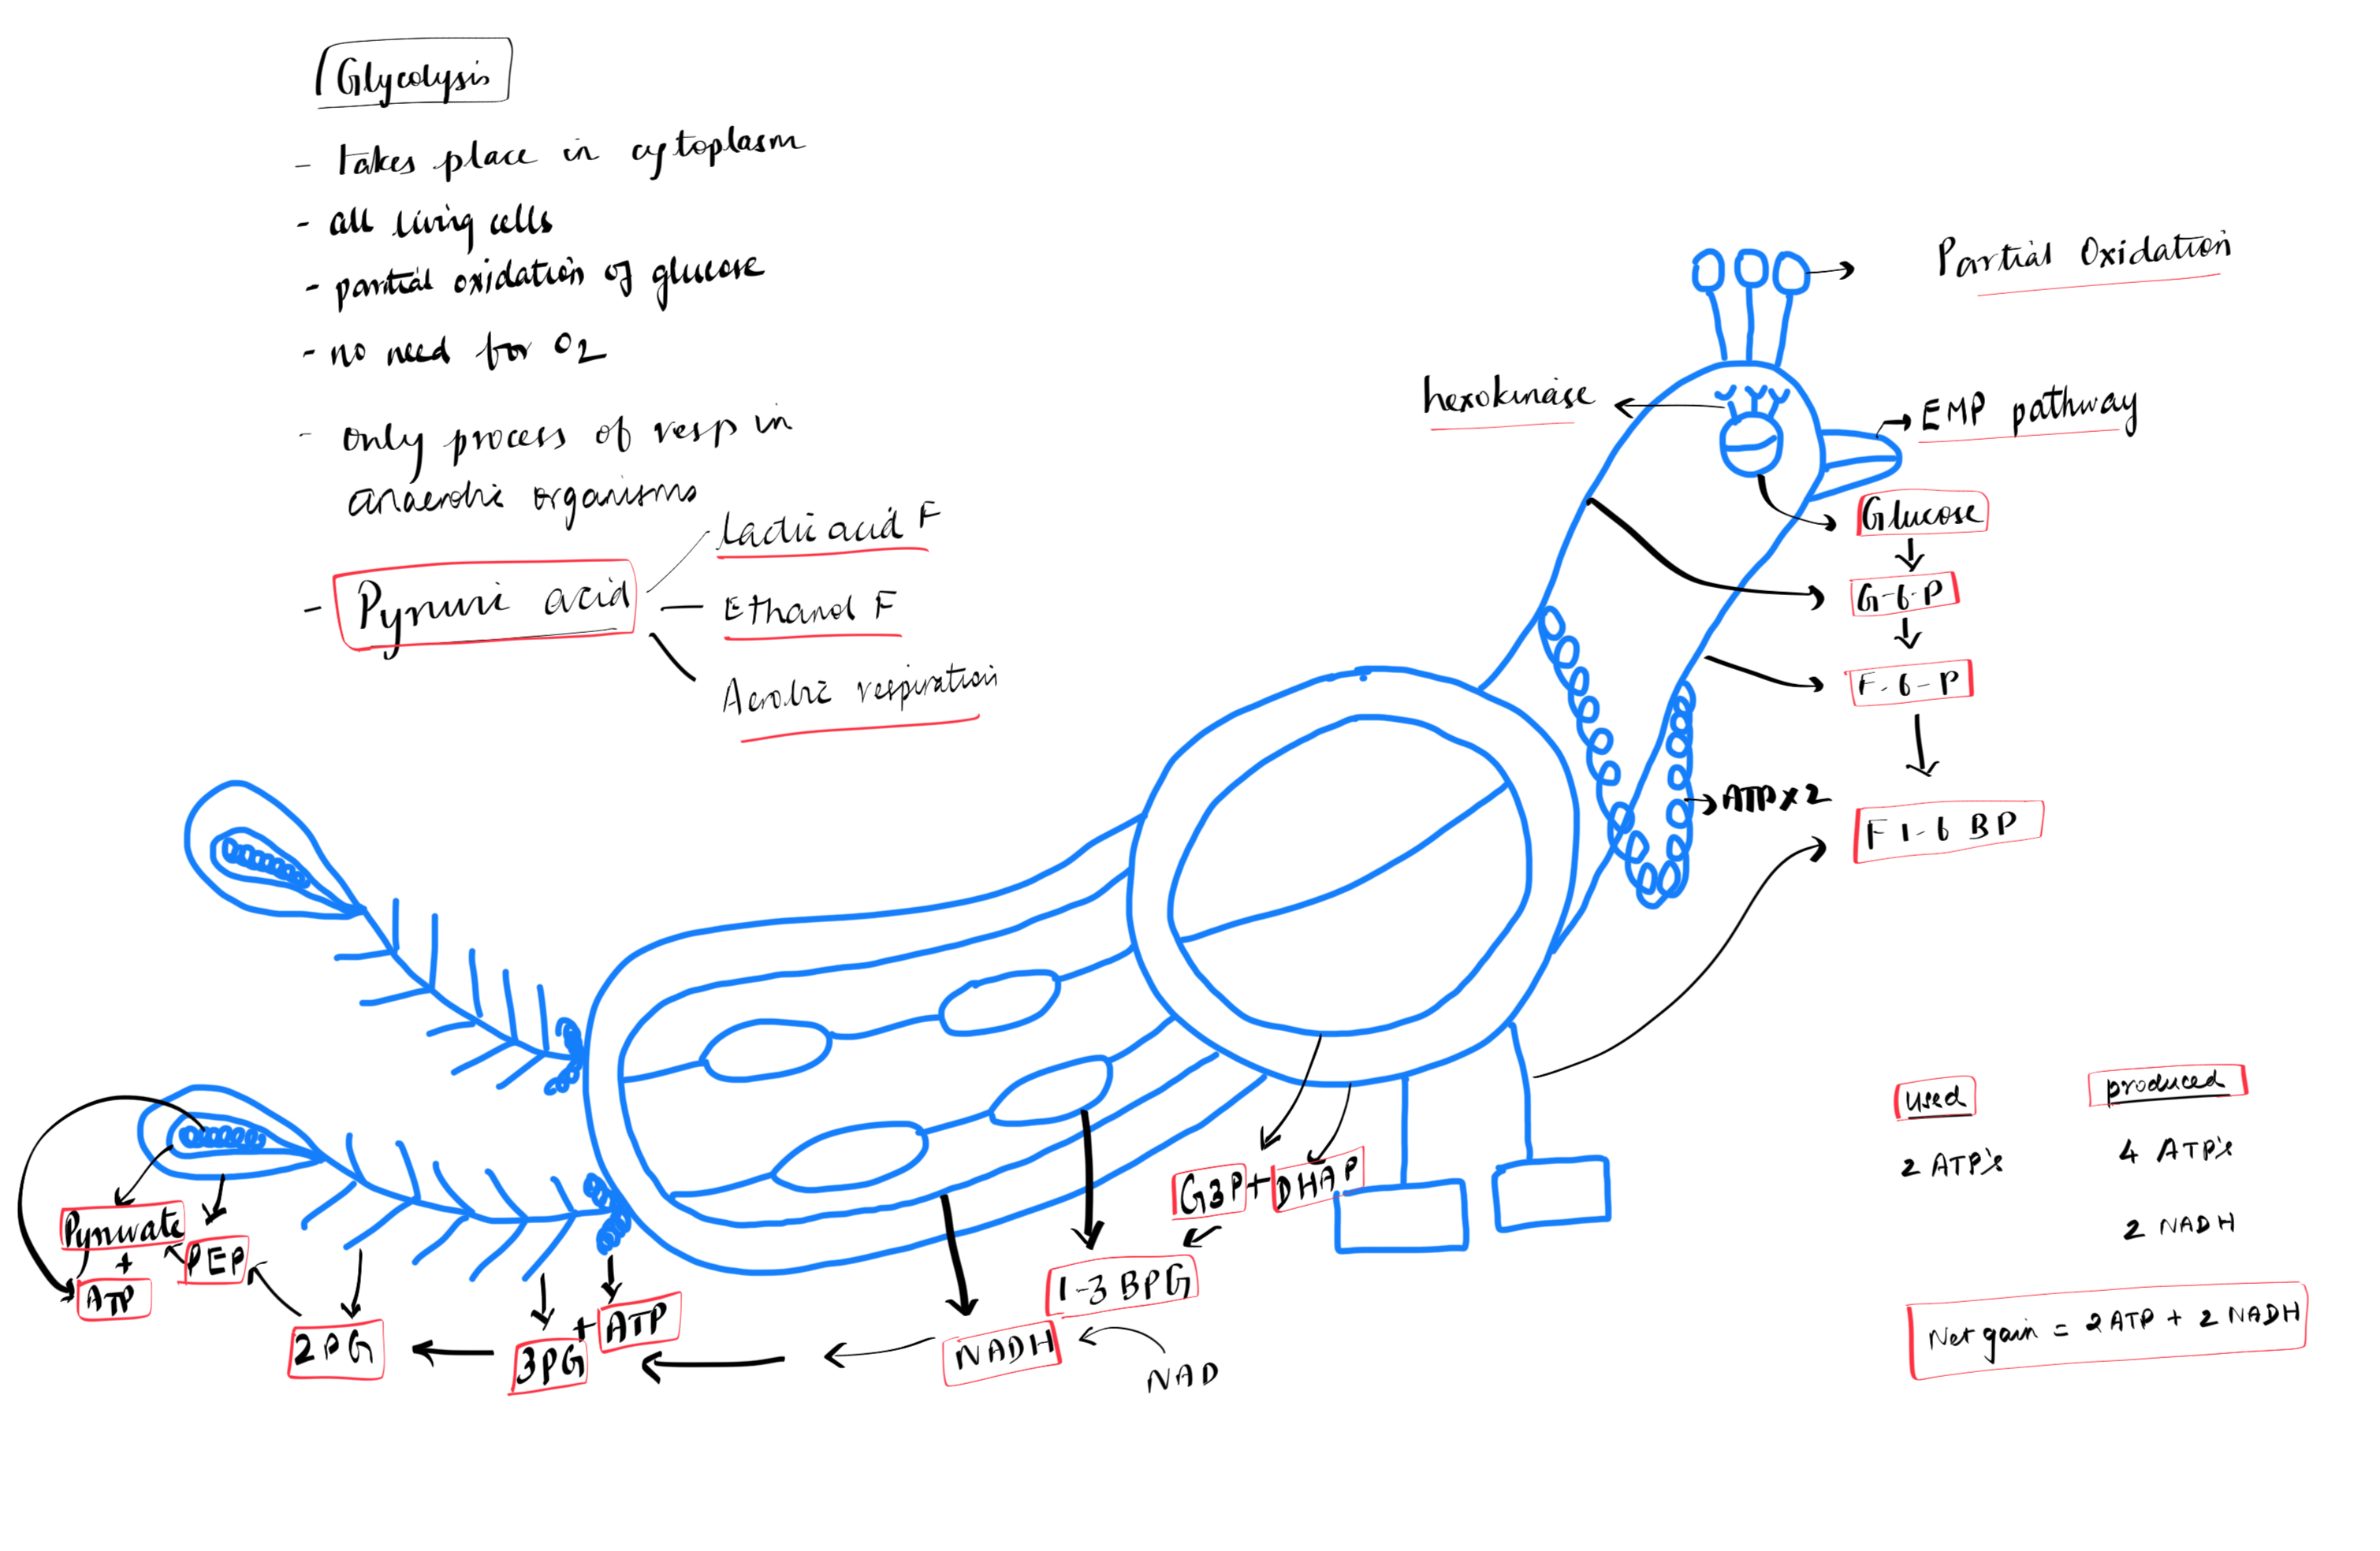 Glycolysis
- takes place in cytoplasm
- all living cells
- partial oxidation of glucose
- no need for O2
- only process of resp in
anaerobic organisms
- Pyruvic acid
Lactic acid F
Ethanol F
Aerobic respiration
Partial Oxidation
hexokinase
EMP pathway
Glucose
G-6-P
F-6-P
ATP x 2
F 1-6 BP
G3P + DHAP
1-3 BPG
NADH
NAD
3PG + ATP
2PG
PEP
Pyruvate
+
ATP
used
2 ATP's
produced
4 ATP's
2 NADH
Net gain = 2 ATP + 2 NADH